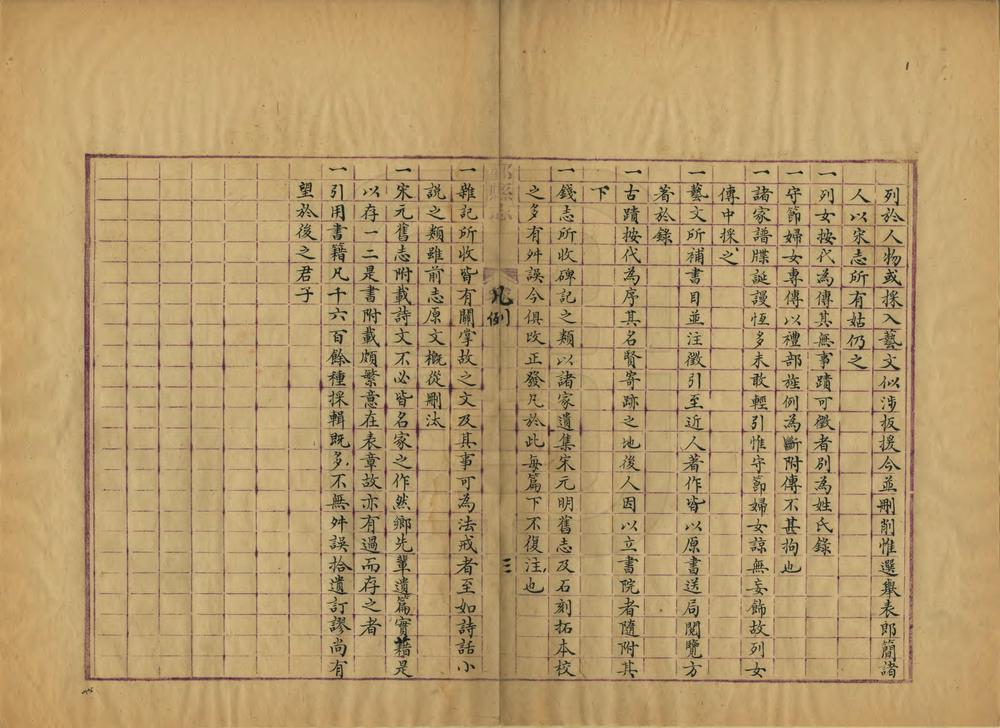 列於人物或採入藝文似涉扳援今並刪削惟選舉表郎簡諸
人以宋志所有姑仍之
一列女按代為傳其無事蹟可徵者別為姓氏錄
一守節婦女專傳以禮部旌例為斷附傳不甚拘也
一諸家譜牒誕謾恆多未敢輕引惟守節婦女諒無妄飾故列女
傳中採之
一藝文所補書目並注徵引至近人著作皆以原書送局閱覽方
著於錄
一古蹟按代為序其名賢寄跡之地後人因以立書院者隨附其
下
一錢志所收碑記之類以諸家遺集宋元明舊志及石刻拓本校
之多有舛誤今俱改正發凡於此每篇下不復注也
鄞縣志
凡例
三
一雜記所收皆有關掌故之文及其事可為法戒者至如詩話小
說之類雖前志原文概從刪汰
一宋元舊志附載詩文不必皆名家之作然鄉先輩遺篇實藉是
以存一二是書附載頗繁意在表章故亦有過而存之者
一引用書籍凡千六百餘種採輯既多不無舛誤拾遺訂謬尚有
望於後之君子